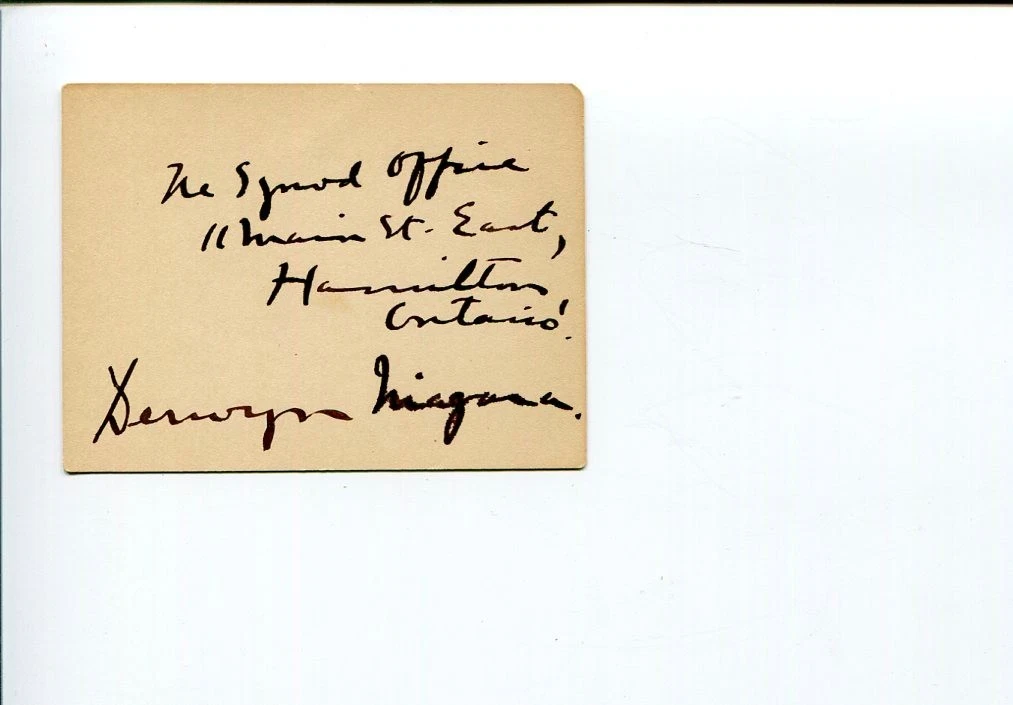 The Synod Office
11 Main St. East,
Hamilton
Ontario.
Derwyn Niagara.